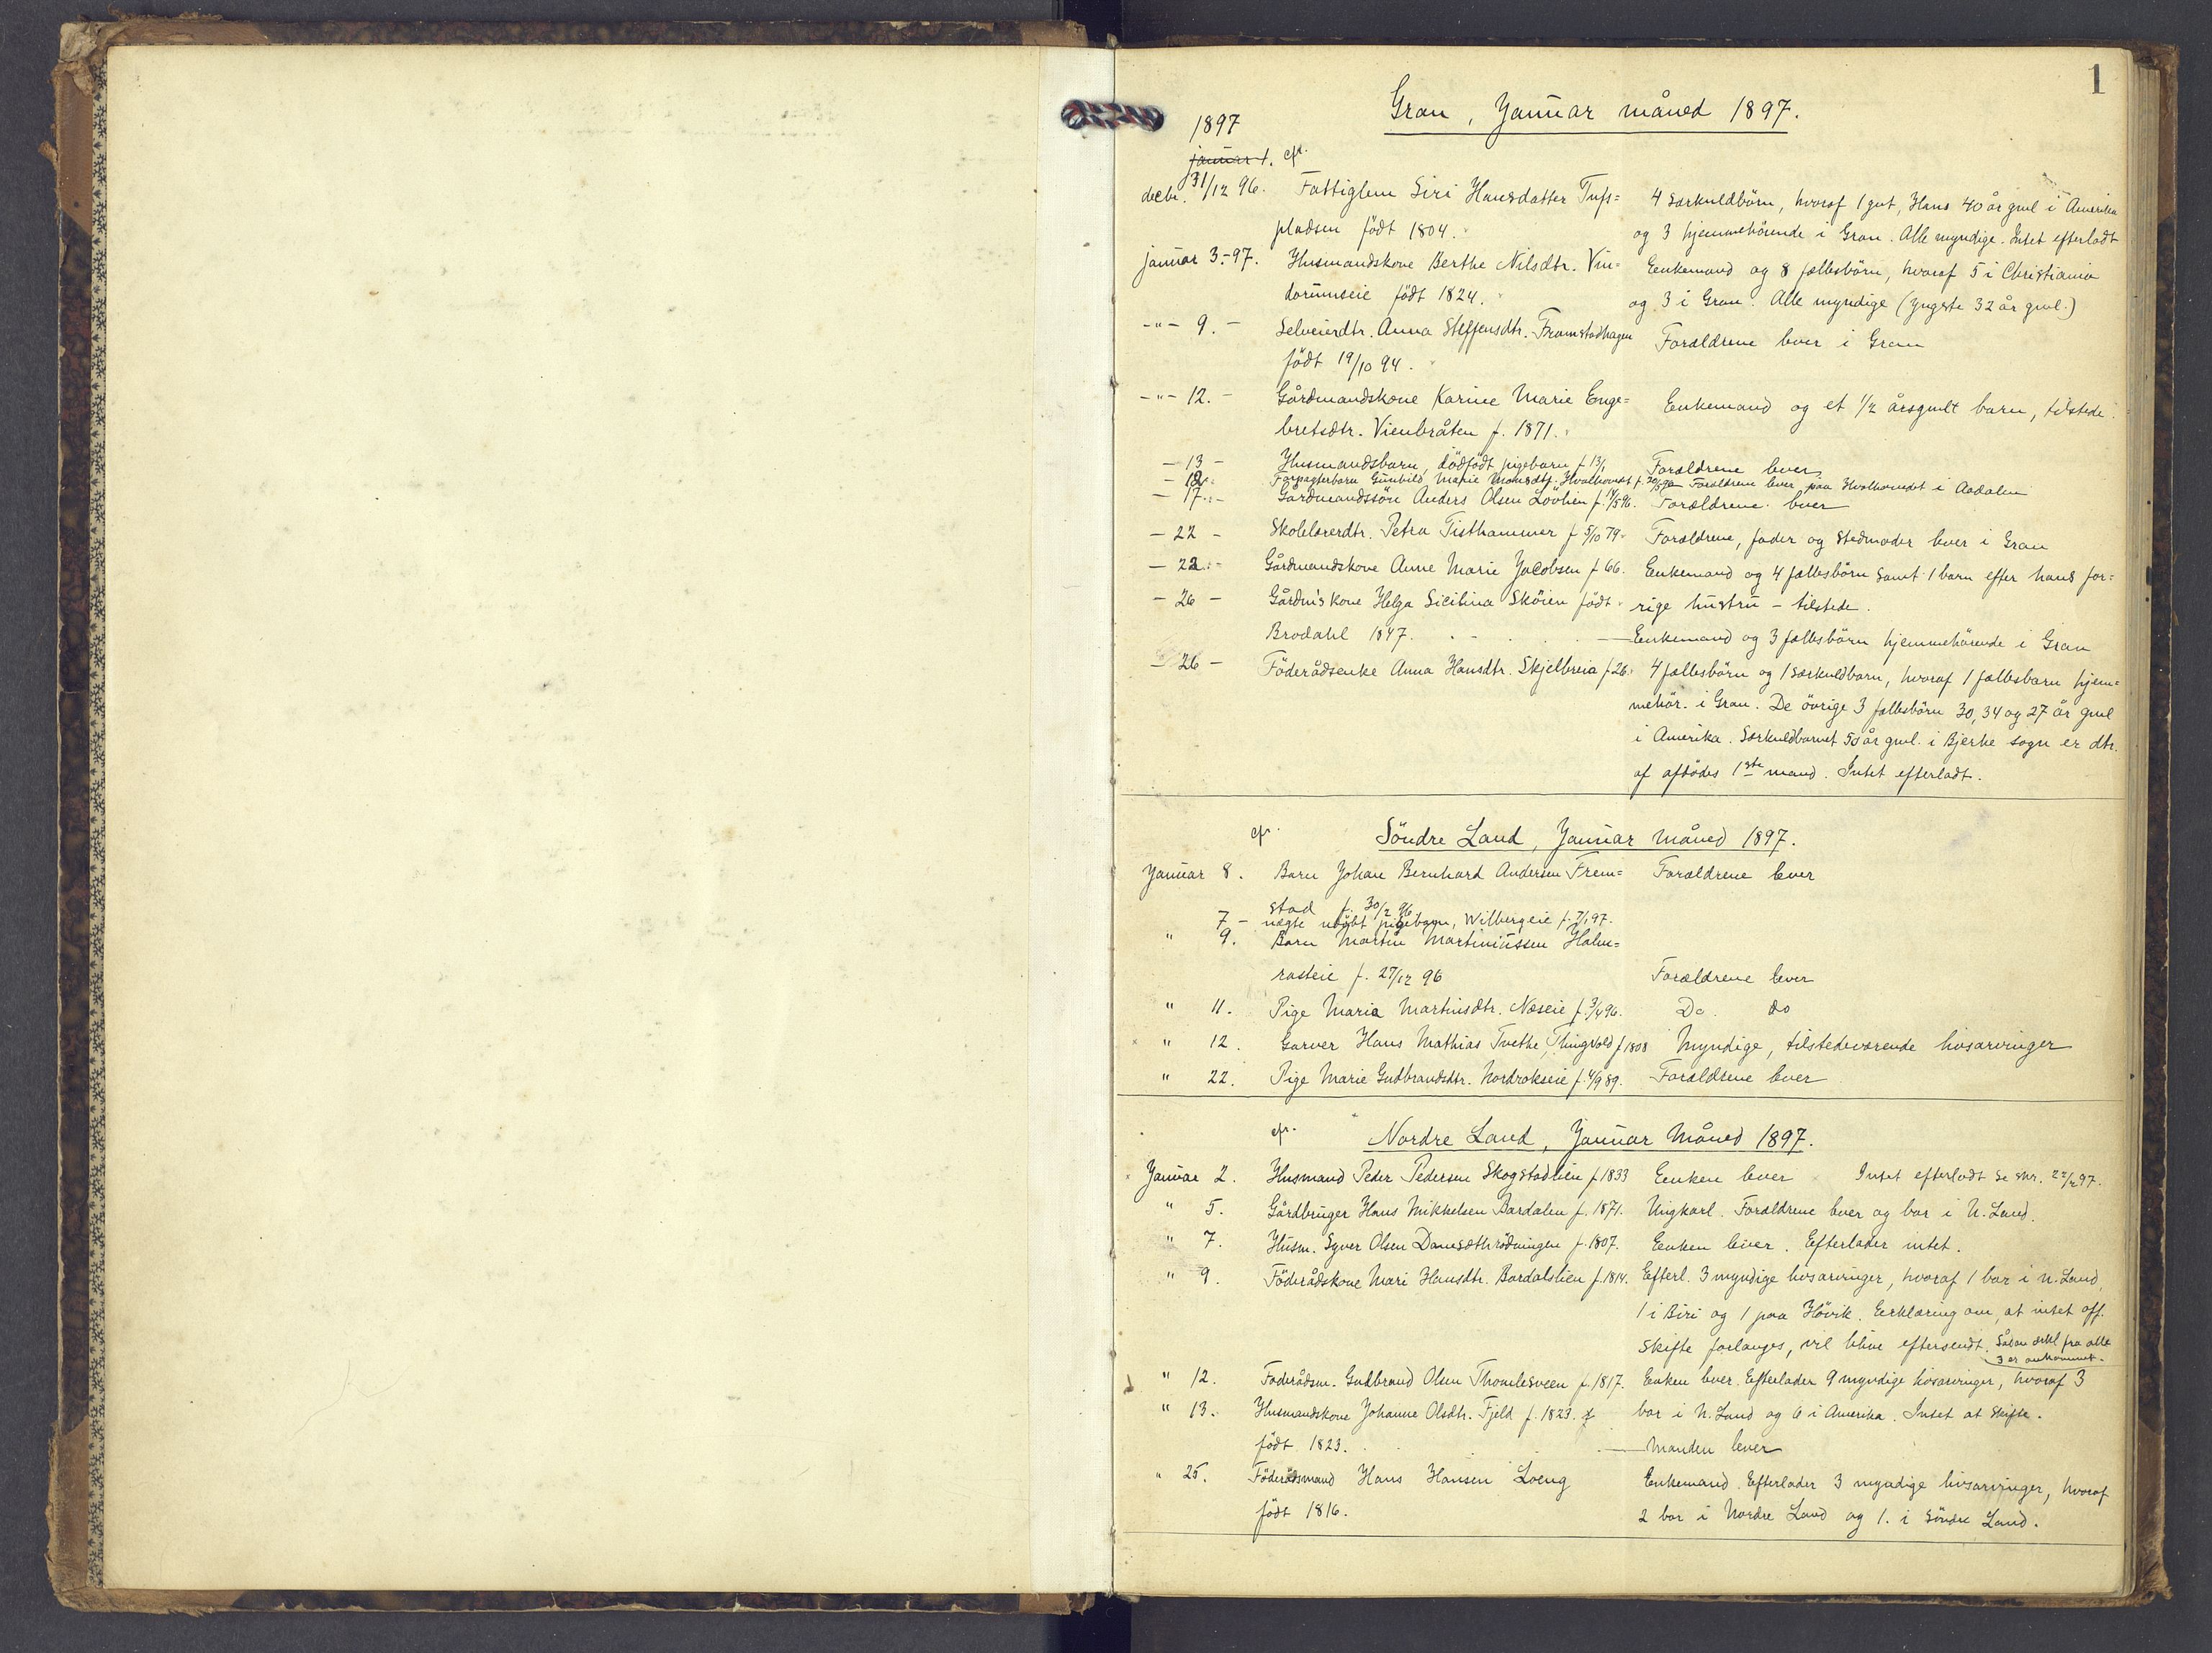 1
Gran, Januar måned 1897.
1897
januar 1. efr.
decbr. 31/12 96. Fattiglem Siri Hansdatter Tufs= 4 særkuldbörn, hvoraf 1 gut, Hans 40 år gml i Amerika
pladsen födt 1804. og 3 hjemmehörende i Gran. Alle myndige. Intet efterladt
januar 3.-97. Husmandskone Berthe Nilsdtr. Vin= Enkemand og 8 fællesbörn, hvoraf 5 i Christiania
dorumseie födt 1824. og 3 i Gran. Alle myndige (yngste 32 år gml.)
-"- 9. - Selveierdtr. Anna Steffensdtr. Framstadhagen Forældrene lever i Gran
födt 19/10 94.
-"- 12. - Gårdmandskone Karine Marie Enge= Enkemand og et 1/2 årsgmlt barn, tilstede.
bretsdtr. Vienbråten f. 1871.
- 13 - Husmandsbarn, dödfödt pigebarn f 13/1 Forældrene lever
- 12. Forpagterbarn Gunhild Marie Monsdtr. Hvalhovedet f. Forældrene lever paa Hvalhovedet i Aadalen
- 17. - Gårdmandssön Anders Olsen Lövlien f. 14/5 96. Forældrene lever
- 22 - Skolelærerdtr. Petra Tisthammer f 5/10 79. Forældrene, fader og stedmoder lever i Gran
- 22. - Gårdmandskone Anne Marie Jacobsen f 66. Enkemand og 4 fællesbörn samt 1 barn efter hans for=
- 26 - Gårdm's kone Helga Sicilina Sköien födt rige hustru - tilstede.
Brodahl 1847. Enkemand og 3 fællesbörn hjemmehörende i Gran
- 26 - Föderådsenke Anna Hansdtr. Skjelbreia f. 26. 4 fællesbörn og 1 særkuldbarn, hvoraf 1 fællesbarn hjem=
mehör. i Gran. De övrige 3 fællesbörn 30, 34 og 27 år gml
i Amerika. Særkuldbarnet 50 år gml. i Bjerke sogn er dtr.
af afdödes 1ste mand. Intet efterladt.
efr. Söndre Land, Januar måned 1897.
Januar 8. Barn Johan Bernhard Andersen Frem= Forældrene lever
stad f. 30/2 96
7 - uægte udöbt pigebarn, Wilbergeie f. 7/1 97.
" 9. Barn Martin Martiniussen Halm=
rasteie f. 27/12 96 Forældrene lever
" 11. Pige Maria Martinsdtr. Næseie f. 3/4 96. Do. do
" 12. Garver Hans Mathias Tvethe, Thingvold f 1808 Myndige, tilstedeværende livsarvinger
" 22. Pige Marie Gudbrandsdtr. Nordrokseie f. 4/9 89. Forældrene lever
efr. Nordre Land, Januar Måned 1897.
Januar 2. Husmand Peder Pedersen Skogstadlien f 1833 Enken lever Intet efterladt se skr. 22/2 97.
" 5. Gårdbruger Hans Mikkelsen Bardalen f. 1871. Ungkarl. Forældrene lever og bor i N. Land.
" 7. Husm. Syver Olsen Danesethrödningen f. 1807. Enken lever. Efterlader intet.
" 9. Föderådskone Mari Hansdtr. Bardalslien f. 1814. Efterl. 3 myndige livsarvinger, hvoraf 1 bor i N. Land,
1 i Biri og 1 paa Hövik. Erklæring om, at intet off.
skifte forlanges, vil blive eftersendt. Sådan erkl fra alle
3 er ankommet.
" 12. Föderådsm. Gudbrand Olsen Thomlesveen f. 1817. Enken lever. Efterlader 9 myndige livsarvinger, hvoraf 3
" 13. Husmandskone Johanne Olsdtr. Fjeld f. 1823. f bor i N. Land og 6 i Amerika. Intet at skifte.
födt 1823. Manden lever
" 25. Föderådsmand Hans Hansen Loeng Enkemand. Efterlader 3 myndige livsarvinger, hvoraf
födt 1816. 2 bor i Nordre Land og 1. i Söndre Land.